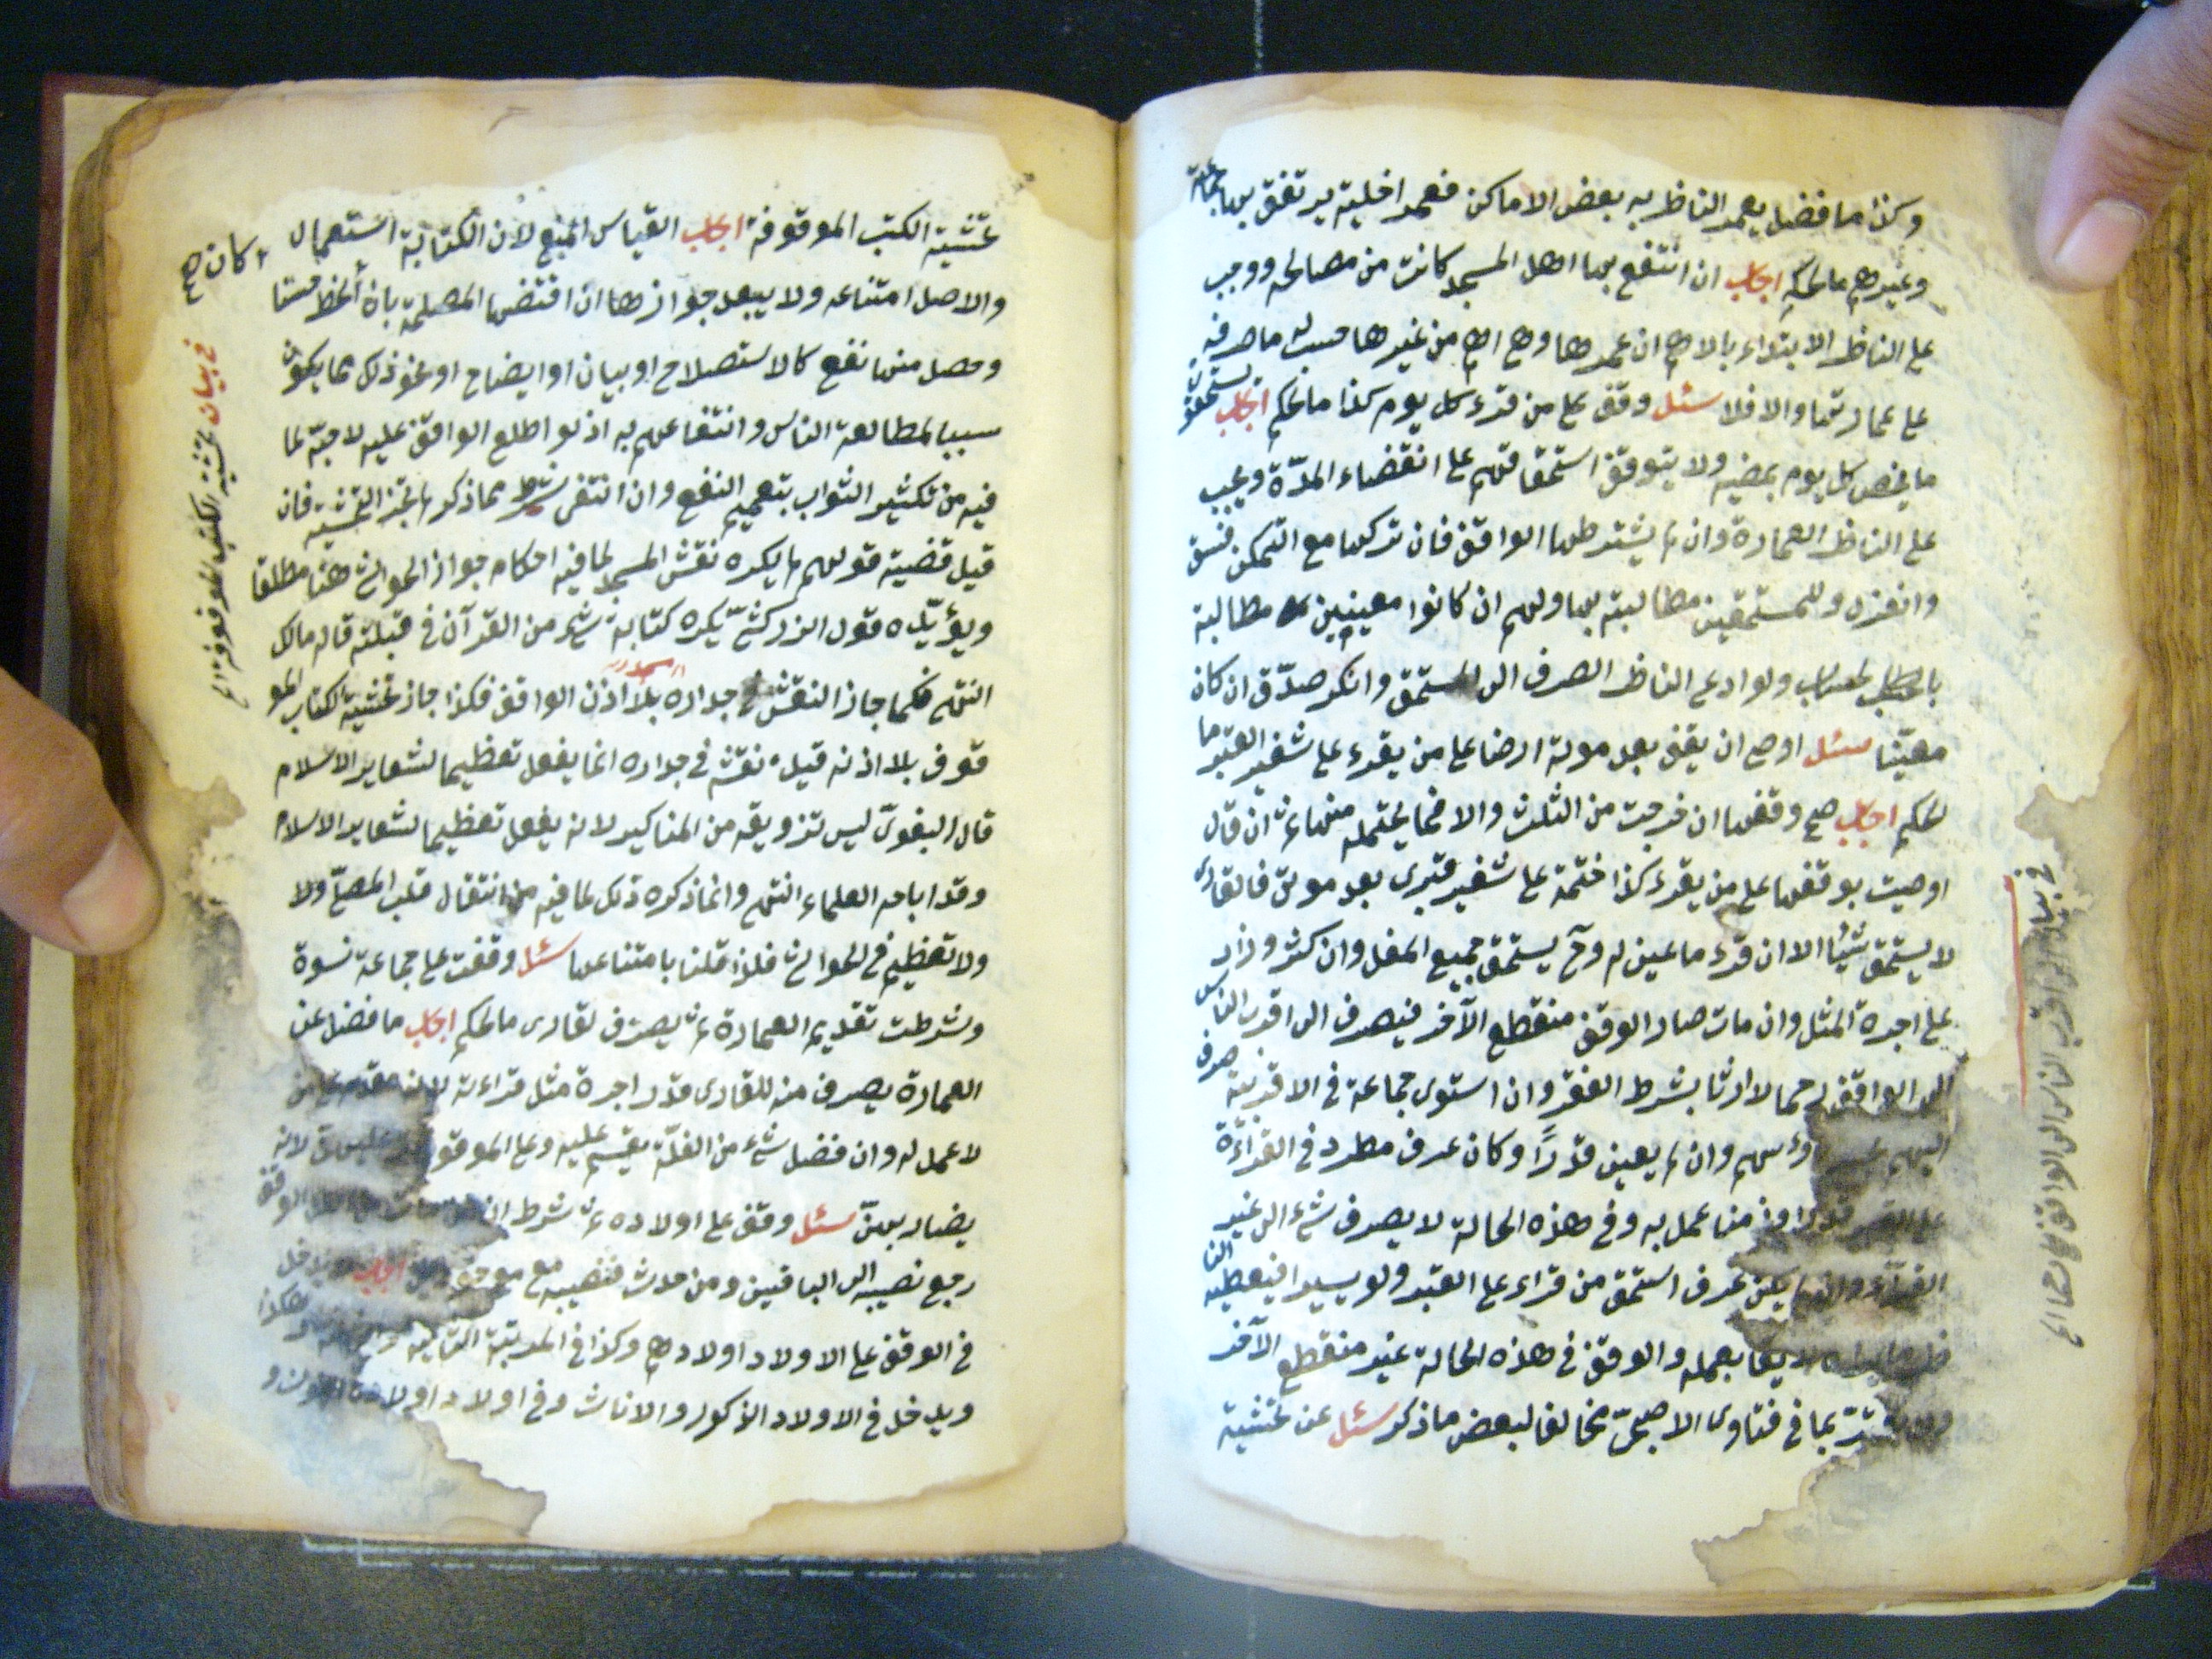 وكذا ما فضل يعمر الناظر به بعض الاماكن فعمر اخلية يرتفق بها جماعة
وغيرهم ما الحكم اجاب ان انتفع بها اهل المسجد كانت من مصالحه ووجب
على الناظر الابتداء بالاهم ان عمرها وهي اهم من غيرها حسب له ما صرفه
على عمارتها والا فلا سئل وقف على من قرء كل يوم كذا ما الحكم اجاب يستحقون
ما يخص كل يوم بمضيه ولا يتوقف استحقاقهم على انقضاء المدّة ويجب
على الناظر العمارة وان لم يشترطها الواقف فان تركها مع التمكن فسق
وانعزل وللمستحقين مطالبته بها ولهم ان كانوا معينين مطالبة
ولو ادعى الناظر الصرف الى المستحق وانكر صدّق ان كان
معيّنا سئل اوصى ان يقف بعد موته ارضا على من يقرء على شفير القبر ما
الحكم اجاب صح وقفها ان خرجت من الثلث والا فما يحتمله منها ثم ان قال
اوصيت بوقفها على من يقرء كذا ختمة على شفير قبرى بعد موتى فالقارى
لا يستحق شيئا الا ان قرء ما عين له وح يستحق جميع المغل وان كثر وزاد
على اجرة المثل وان مات صار الوقف منقطع الآخر فيصرف الى اقرب الناس
الى الواقف رحما لا ارثا بشرط الفقر وان استوى جماعة فى الاقربية صرف
اليهم وان لم يعين قدرًا وكان عرف مطرد فى القراءة
على القبر قدرا وزمنا عمل به وفى هذه الحالة لا يصرف شئ الى غير
القرّاء وان لم يكن عرف استحق من قراء على القبر ولو يسيرا فيعطيه النا
ظر ما يراه لايقا بعمله والوقف فى هذه الحالة غير منقطع الآخر
بما فى فتاوى الاصبحىّ مخالفا لبعض ما ذكر سئل عن تحشية
فى بيان اقرب الناس الى الواقف رحما الخ
تحشية الكتب الموقوفة اجاب القياس المنع لان الكتابة استعمال
والاصل امتناعه ولا يبعد جوازها ان اقتضها المصلحة بان كان الخط حسنا
وحصل منها نفع كالاستصلاح او بيان او ايضاح او نحو ذلك مما يكون
سببا لمطالعة الناس وانتفاعهم به اذ لو اطلع الواقف عليه لاحبّه لما
فيه من تكثير الثواب بتعميم النفع وان انتفى شرط مما ذكر لم تجز التحشية فان
قيل قضية قولهم لم يكره نقش المسجد لما فيه احكام جواز الحواشى هنا مطلقا
ويؤيّده قول الزركشىّ يكره كتابة شئ من القرآن فى قبلته قاله مالك
انتهى فكما جاز النقش فى جداره بلا اذن الواقف فكذا جاز تحشية الكتاب المو
قوف بلا اذنه قيل نقشه فى جداره انما يفعل تعظيما لشعاير الاسلام
قال البغوىّ ليس تزويقه من المناكير لانه يفعل تعظيما لشعاير الاسلام
وقد اباحه العلماء انتهى وانما ذكره ذلك لما فيه من انتقال قلب المصلّى ولا
ولا تعظيم فى الحواشى فلذا قلنا بامتناعها سئل وقفت على جماعة نسوة
وشرطت تقديم العمارة ثم يصرف لقارى ما الحكم اجاب ما فضل عن
العمارة يصرف منه للقارى قدر اجرة مثل قراءته لانه مقدم على من
لا عمل له وان فضل شئ من الغلّة يقسم عليه وعلى الموقوف عليهن لانه
يضار بهنّ سئل وقف على اولاده ثم شرط ان من مات من اهل الوقف
رجع نصيبه الى الباقين ومن حدث فنصيبه مع اجاب يدخل
فى الوقف على الاولاد اولادهم وكذا فى المرتبة الثانية وهكذا
ويدخل فى الاولاد الذكور والاناث وفى اولاد اولاد
فى بيان تحشية الكتب الموقوفة الخ
كان صح